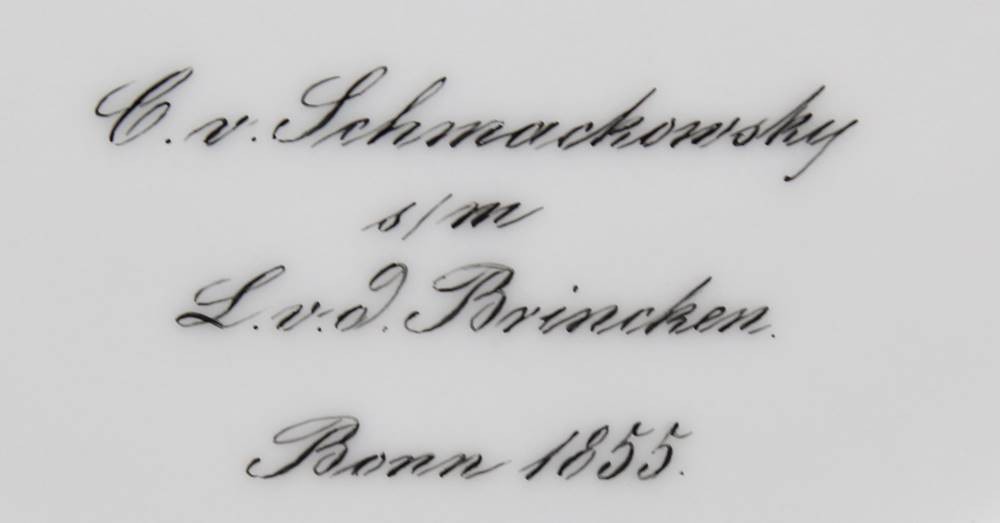 C. v. Schmackowsky
s/m
L. v. d. Brincken.
Bonn 1855.